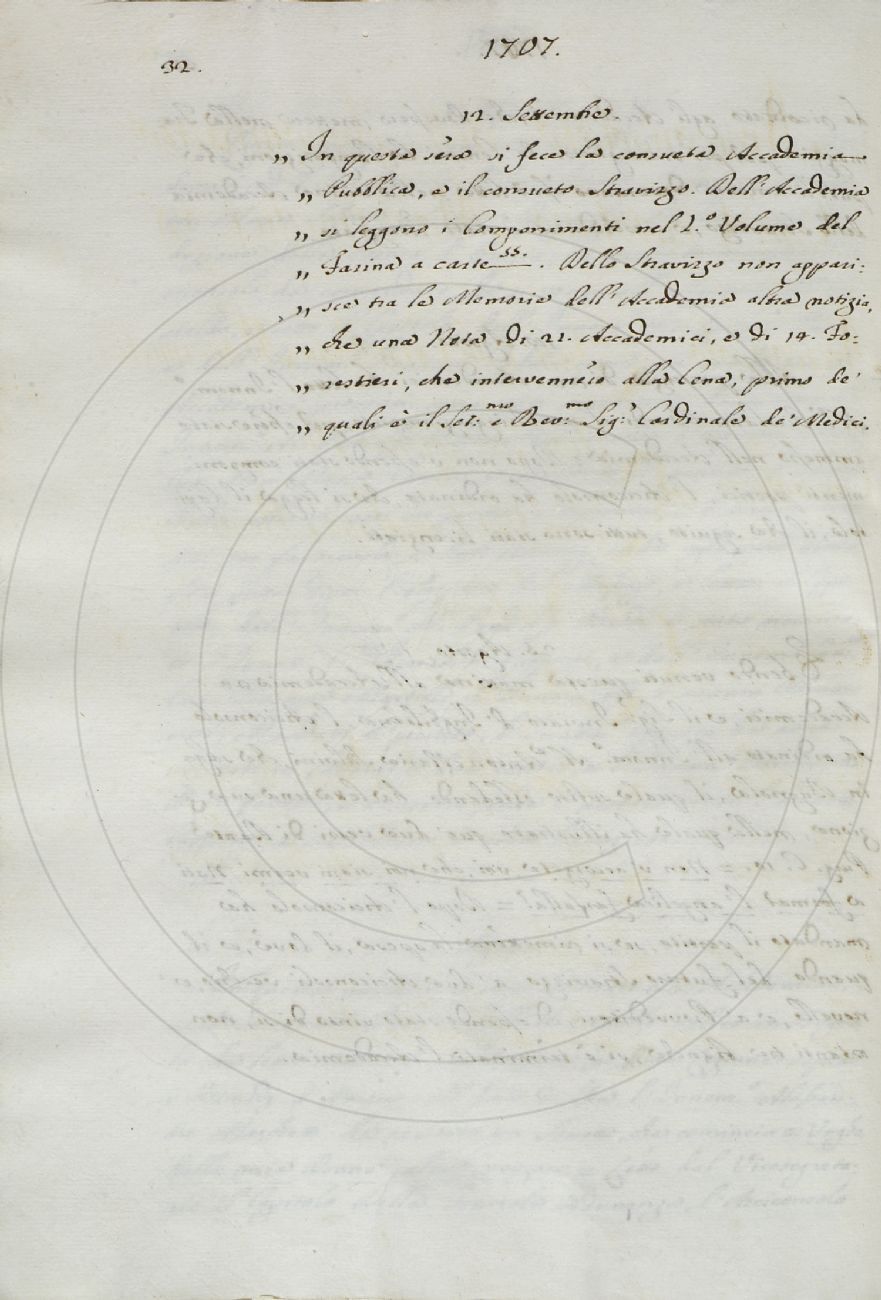 1707.
32.
12. Settembre.
„ In questa sera si fece la consueta Accademia
„ Pubblica, e il consueto Stravizzo. Dell' Accademia
„ si leggono i Componimenti nel 2.º Volume del
„ Farina a carte 55. Dello Stravizzo non appari:
„ sce tra le Memorie dell' Accademia altra notizia,
„ che una Nota di 21. Accademici, e di 14. Fo:
„ restieri, che intervennero alla Cena, primo de'
„ quali è il Ser:mo e Rev:mo Sig.r Cardinale de' Medici.